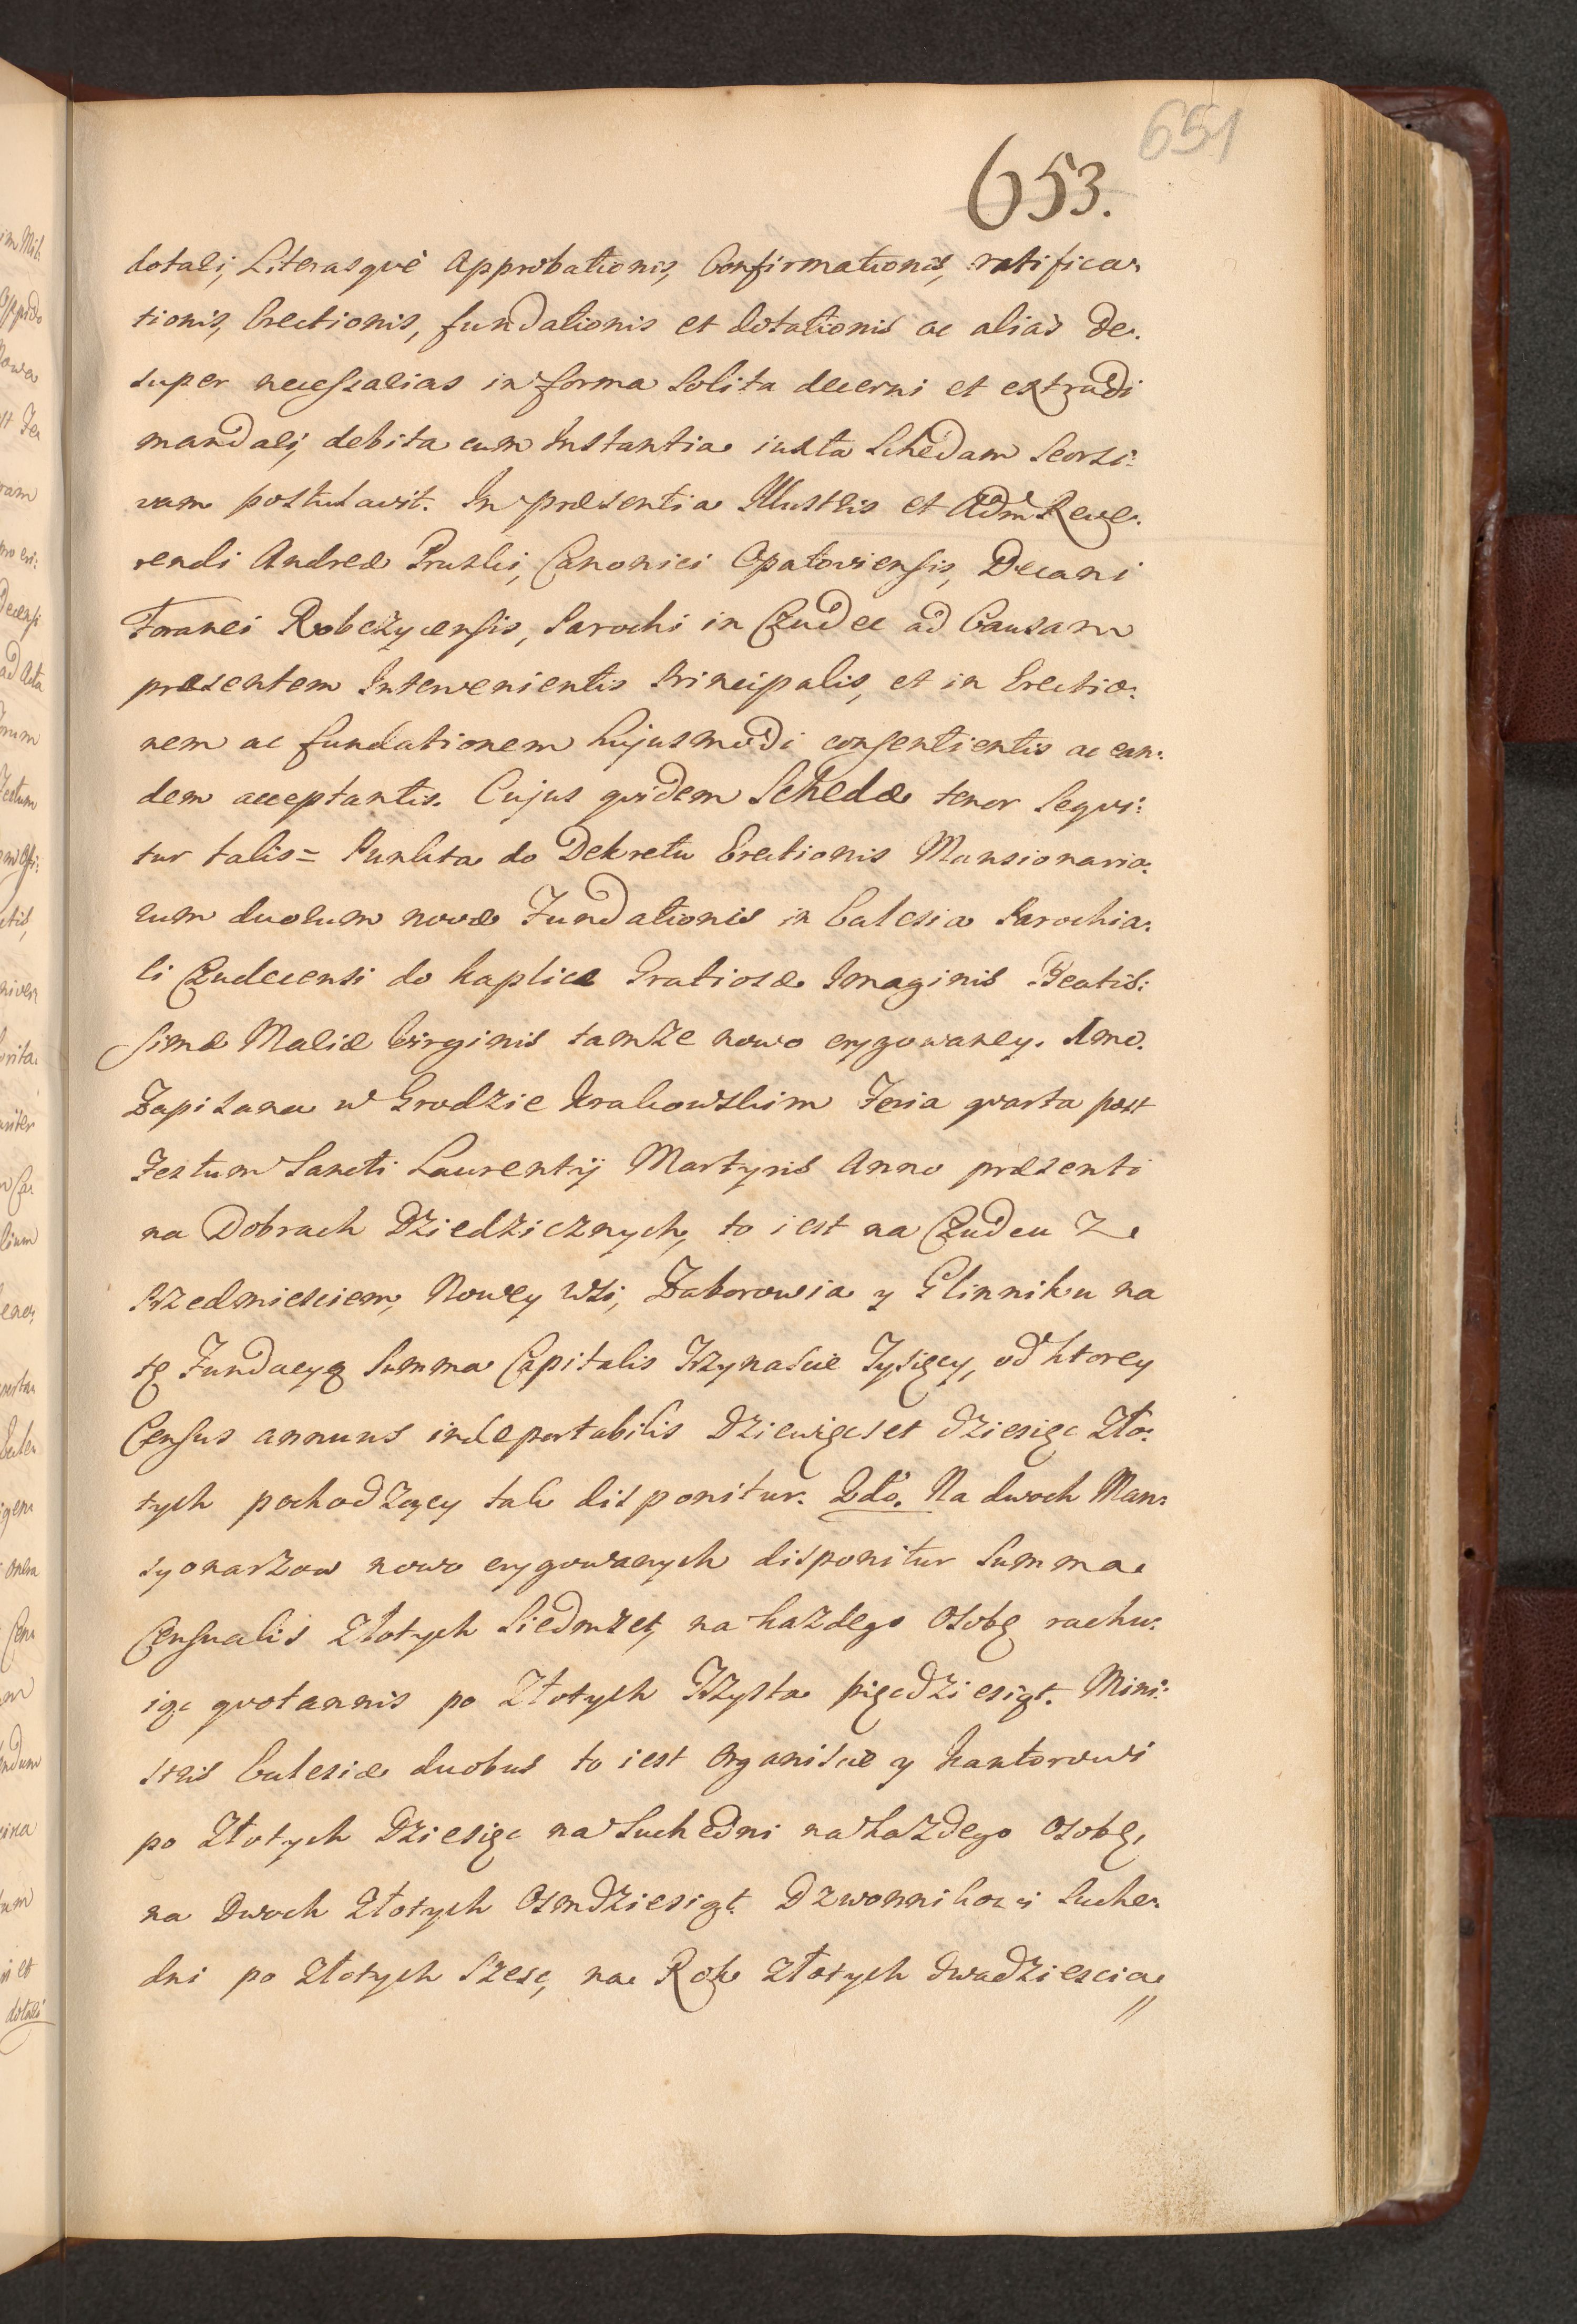 651
653.
dotali, Literasquè Approbationis, Confirmationis, ratifica-
tionis, Erectionis, fundationis et dotationis ac alias de-
super necessarias in forma Solita decerni et extradi
mandari, debita cum Instantia iuxta Schedam Seorsi:
vam postulavit. In præsentia Illustris et Adm Reve-
rendi Andreæ Pruski, Canonici Opatoviensis, Decani
Foranei Robczycensis, Parochi in Czudec ad Causam
præsentem Intervenientis Principalis, et in Erectio:
nem ac fundationem hujusmodi consentientis ac ean:
dem acceptantis. Cujus qvidem Schedæ tenor Seqvi:
tur talis= Punkta do Dekretu Erectionis Mansionario:
rum duorum novæ Fundationis in Eccl​esia Parochia:
li Czudecensi do kaplice Gratiosæ Imaginis Beatis:
simæ Mariæ Virginis tamże nowo erygowaney. 1mo.
Zapisana w Grodzie Krakowskim Feria qvarta post
Festum Sancti Laurentij Martyris Anno præsenti
na Dobrach Dziedzicznych, to iest na Czudcu Ze
Przedmiesciem, Nowey Wsi, Zaborowia y Glinniku na
tę Fundacyą Summa Capitalis Trzynascie Tysięcy, od ktorey
Census annuus indeportabilis Dziewięcset dziesięc Zło:
tych pochodzący tak disponitur. 2do. Na dwoch Man:
syonarzow nowo erygowanych disponitur Summa
Censualis Złotych Siedmset, na każdego Osobę rachu:
iąc qvotannis po Złotych Trzysta pięcdziesiąt. Mini:
stris Ecclesiæ duobus to iest Organiscie y kantorowi
po Złotych Dziesięc na Suchedni na każdego Osobę,
na Dwoch Złotych Osmdziesiąt. Dzwonnikowi Suche-
dni po Złotych Szesc, na Rok Złotych dwadziescia